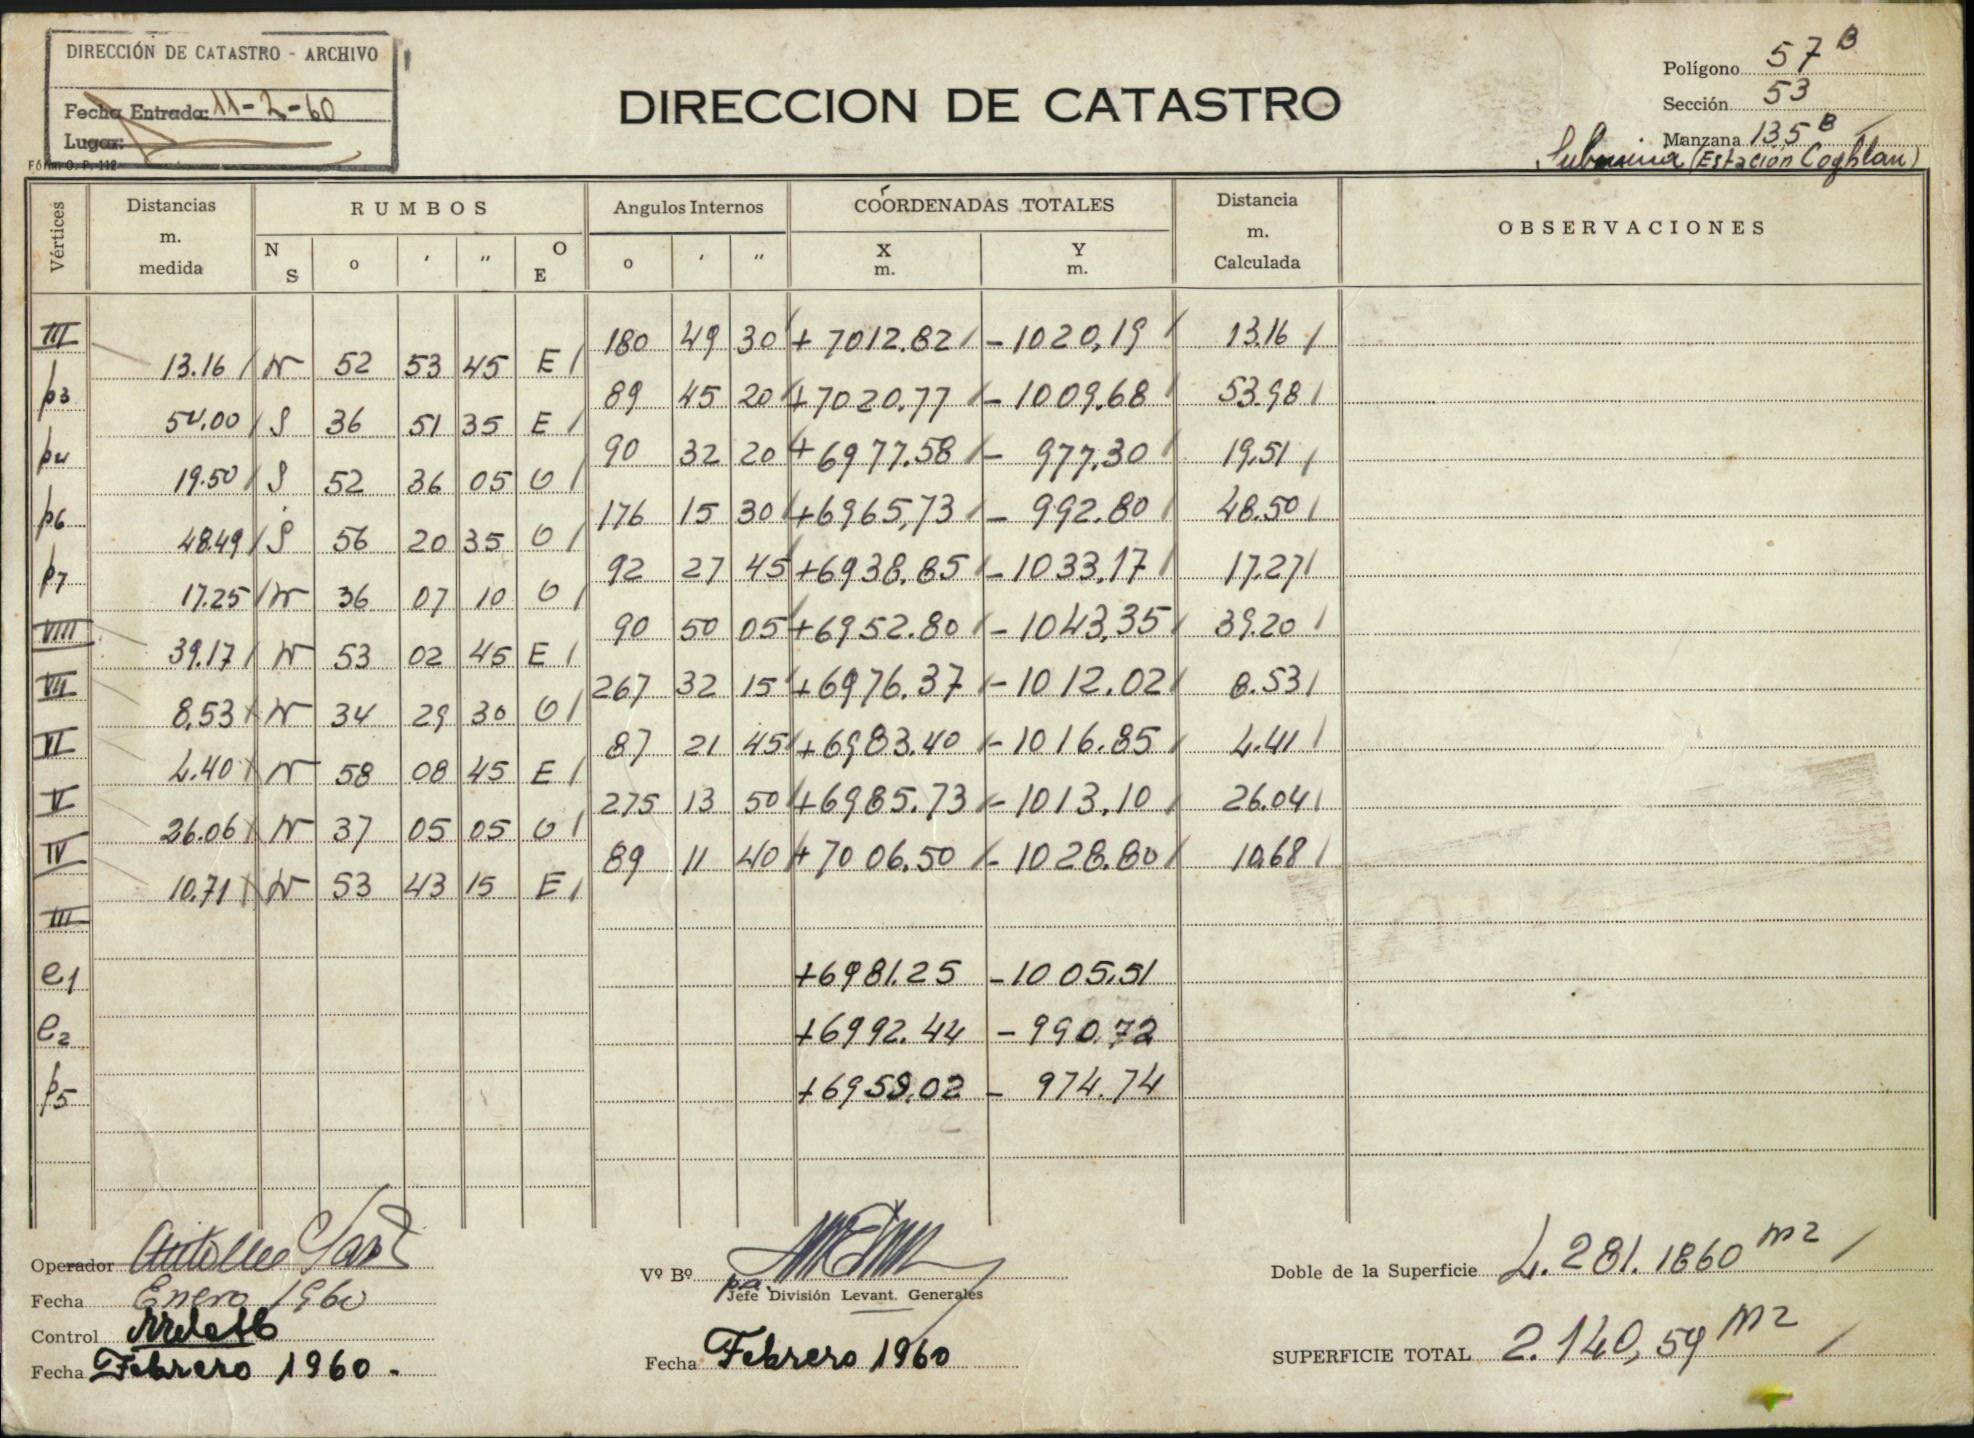 DIRECCIÓN DE CATASTRO - ARCHIVO
Fecha Entrada: 11-2-60
Lugar:
DIRECCION DE CATASTRO
Polígono 57 B
Sección 53
Manzana 135 B
(Estación Coghlan)
Vértices Distancias m. medida RUMBOS N S o ' " O E Angulos Internos o ' " COORDENADAS TOTALES X m. Y m. Distancia m. Calculada OBSERVACIONES
III 180 49 30 + 7012.82 - 1020,19 13.16
13.16 N 52 53 45 E
p3 89 45 20 + 7020.77 - 1009.68 53.98
54.00 S 36 51 35 E
p4 90 32 20 + 6977.58 - 977.30 19.51
19.50 S 52 36 05 O
p6 176 15 30 + 6965,73 - 992.80 48.50
48.49 S 56 20 35 O
p7 92 27 45 + 6938.85 - 1033.17 17.27
17.25 N 36 07 10 O
VIII 90 50 05 + 6952.80 - 1043,35 39.20
39.17 N 53 02 45 E
VII 267 32 15 + 6976.37 - 1012.02 8.53
8,53 N 34 29 30 O
VI 87 21 45 + 6983.40 - 1016.85 4.41
4.40 N 58 08 45 E
V 275 13 50 + 6985.73 - 1013,10 26.04
26.06 N 37 05 05 O
IV 89 11 40 + 7006.50 - 1028.80 10.68
10.71 N 53 43 15 E
III
e1 + 6981.25 - 1005.51
e2 + 6992.44 - 990.72
p5 + 6959.02 - 974.74
Operador
Fecha Enero 1960
Control
Fecha Febrero 1960.-
Vº Bº
pa. Jefe División Levant. Generales
Fecha Febrero 1960
Doble de la Superficie 4.281.1860 m2
SUPERFICIE TOTAL 2.140,59 m2